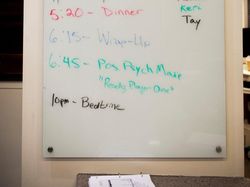 5:20 - Dinner
Tay
6:15 - Wrap-Up
6:45 - Pos Psych Movie
"Ready Player One"
10pm - Bedtime